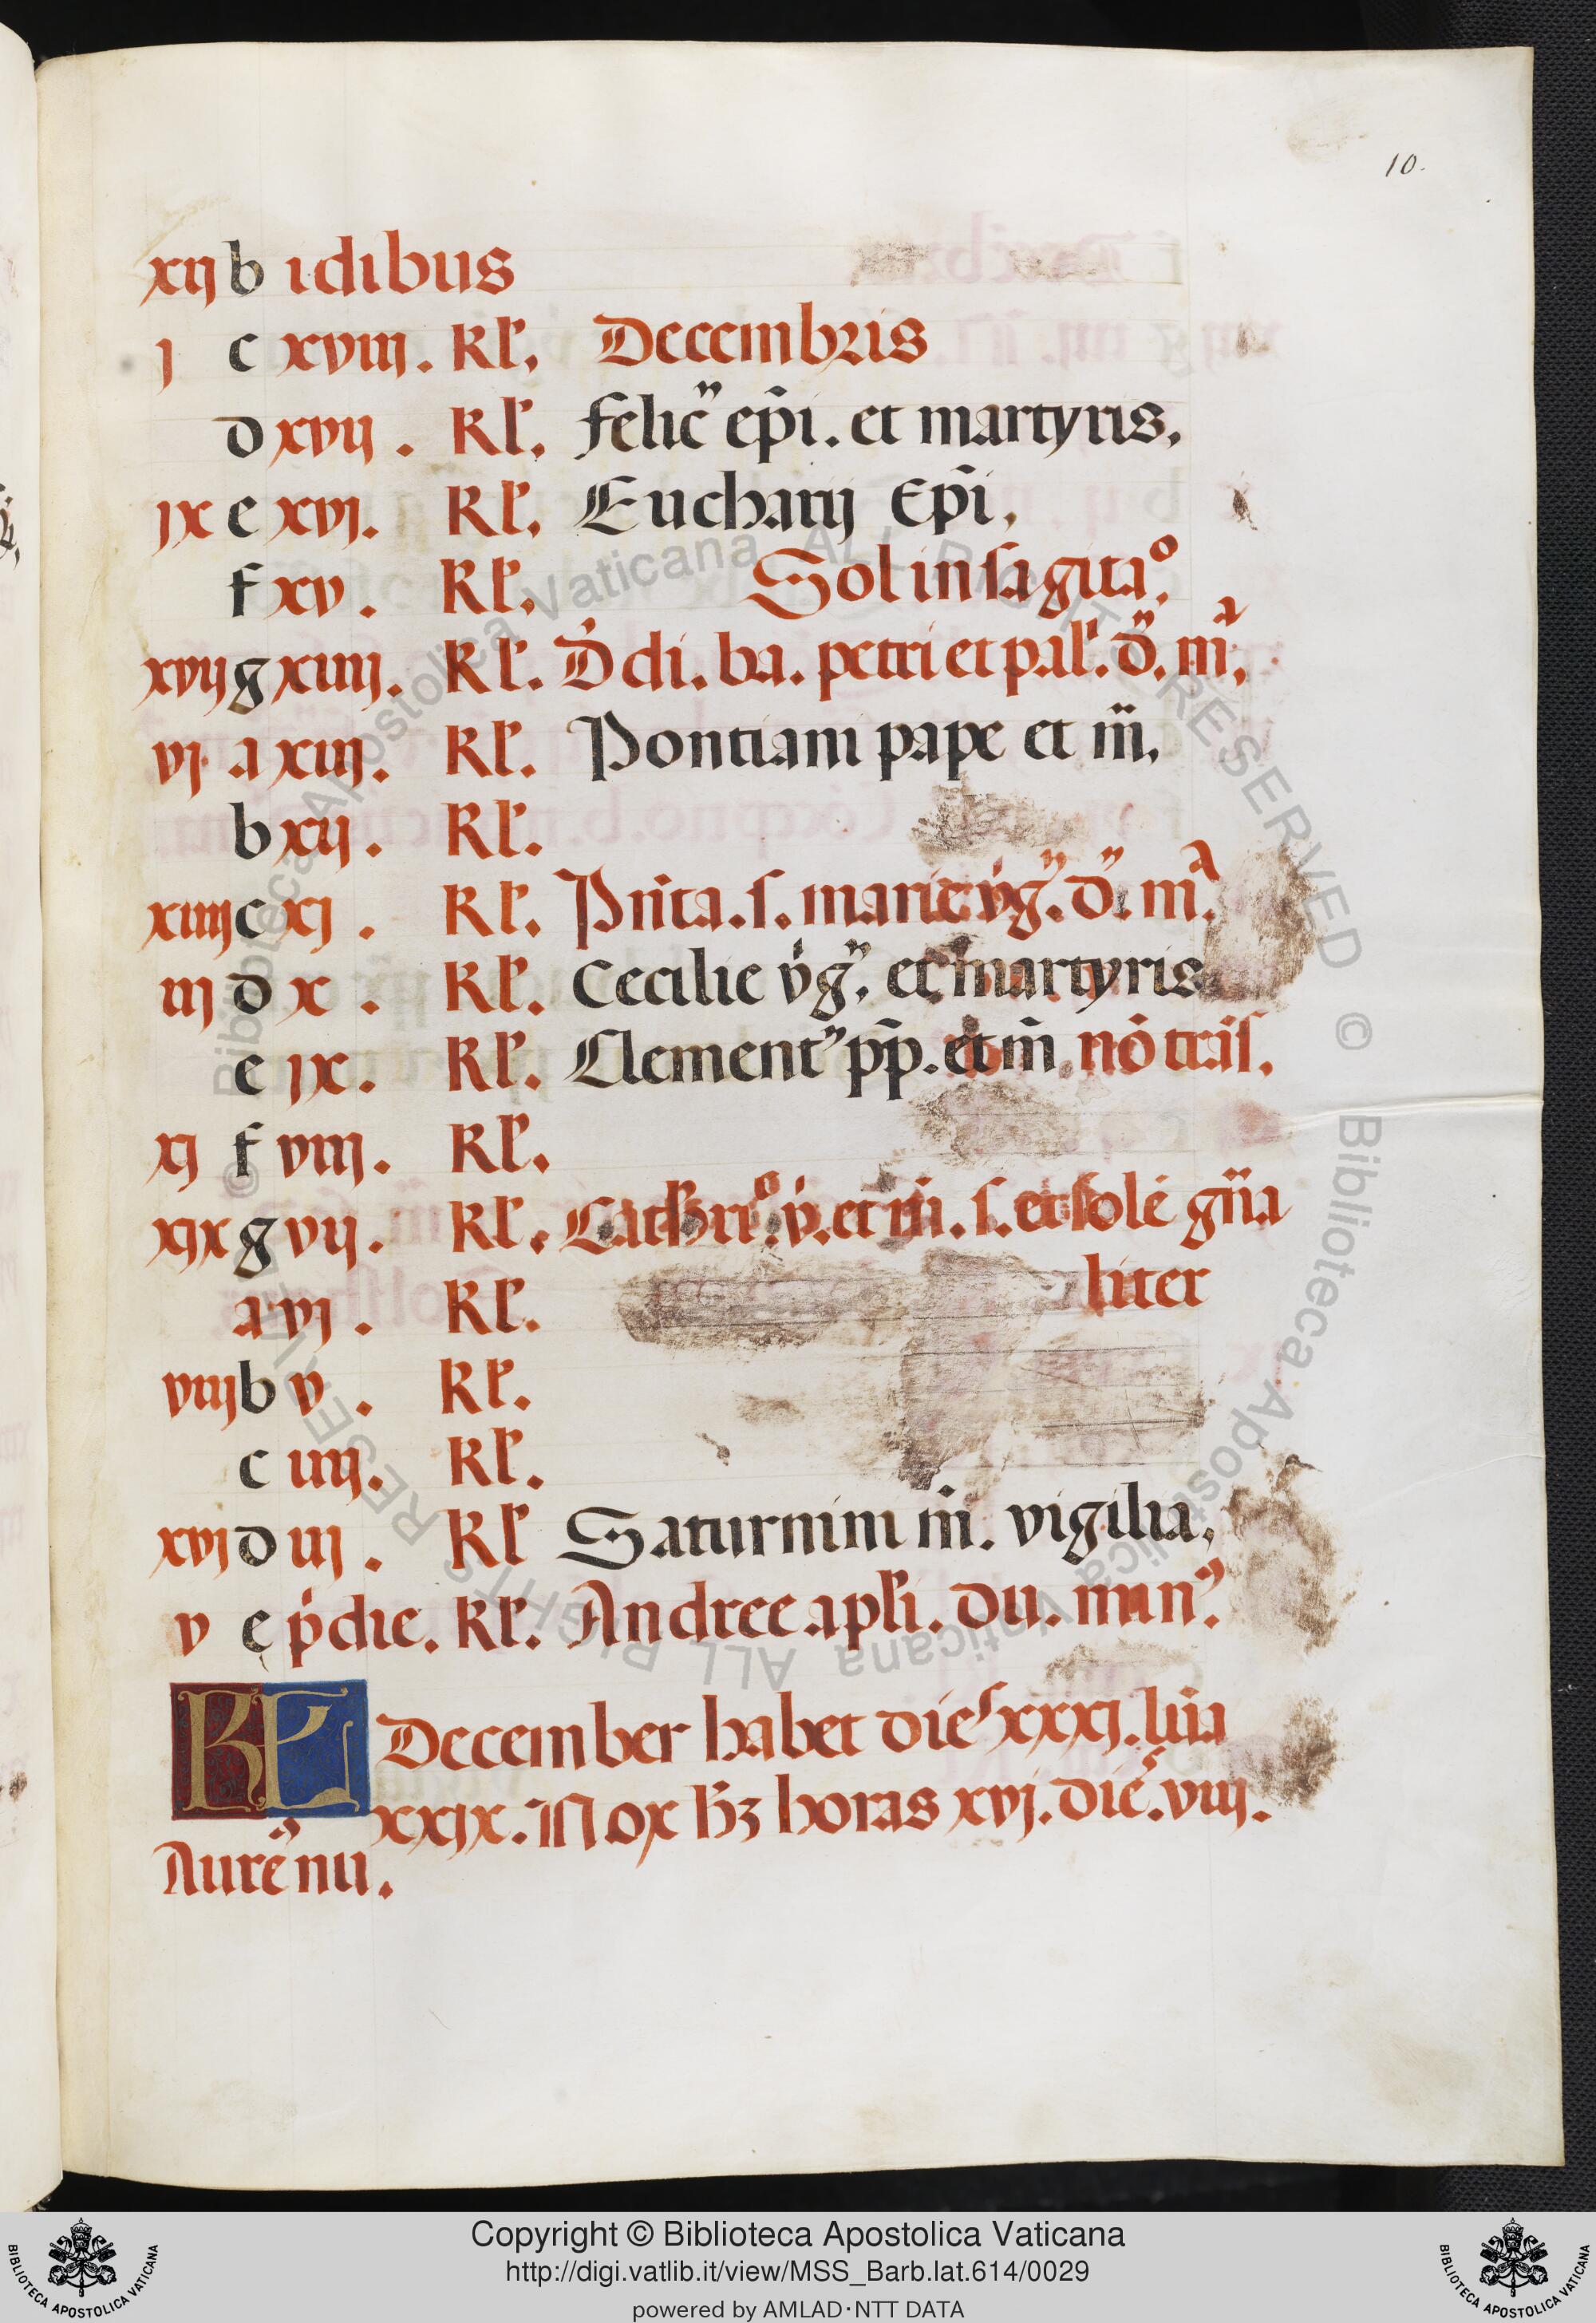 10.
xij b idibus
j c xviij. kl̄. Decembris
d xvij. kl̄. felic̄ ep̄i. et martyris.
jx e xvj. kl̄. Eucharij Ep̄i.
f xv. kl̄. Sol in sagitaº.
xvij g xiiij. kl̄. D̄di. ba. petri et pal̄. d̄. mᵃ.
vj a xiij. kl̄. Pontiani pape et m̄.
b xij. kl̄.
xiiij c xj. kl̄. Pn̄ta. s. marie v̄ḡ. d̄. mᵃ.
iij d x. kl̄. Cecilie v̄ḡ. et martyris
e jx. kl̄. Clement̄ pp̄. et m̄ nō trās.
xj f viij. kl̄.
xjx g vij. kl̄. v̄. et m̄. s. et solē gn̄a
a vj. kl̄. liter
viij b v. kl̄.
c iiij. kl̄.
xvj d iij. kl̄ Saturnini m̄. vigilia.
v e p̄die. kl̄. Andree apl̄i. du. min̄.
KL December habet dies xxxj. lūa
xxjx. Nox h̄ꝫ horas xvj. diē. viij.
Aurē nu.
© Biblioteca Apostolica Vaticana ALL RIGHTS RESERVED © Biblioteca Apostolica Vaticana ALL RIGHTS RESERVED
BIBLIOTECA APOSTOLICA VATICANA
Copyright © Biblioteca Apostolica Vaticana
http://digi.vatlib.it/view/MSS_Barb.lat.614/0029
powered by AMLAD·NTT DATA
BIBLIOTECA APOSTOLICA VATICANA